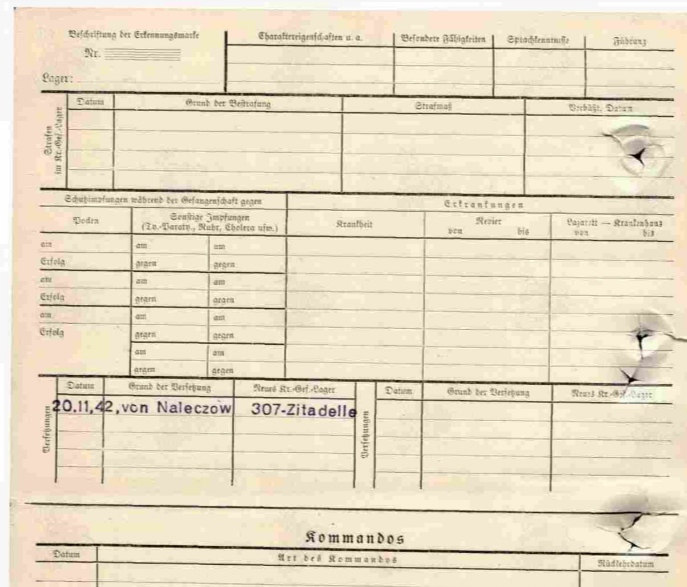 Beschriftung der Erkennungsmarke
Nr.
Lager:
Charaktereigenschaften u. a.
Besondere Fähigkeiten
Sprachkenntnisse
Führung
Strafen im Kr.-Gef.-Lager
Datum
Grund der Bestrafung
Strafmaß
Verbüßt, Datum
Schutzimpfungen während der Gefangenschaft gegen
Erkrankungen
Pocken
Sonstige Impfungen
(Ty.-Paraty., Ruhr, Cholera usw.)
Krankheit
Revier
von bis
Lazarett — Krankenhaus
von bis
am am am
Erfolg gegen gegen
am am am
Erfolg gegen gegen
am am am
Erfolg gegen gegen
am am
gegen gegen
Versetzungen
Datum Grund der Versetzung Neues Kr.-Gef.-Lager
20.11,42,von Naleczow 307-Zitadelle
Versetzungen
Datum Grund der Versetzung Neues Kr.-Gef.-Lager
Kommandos
Datum Art des Kommandos Rückkehrdatum